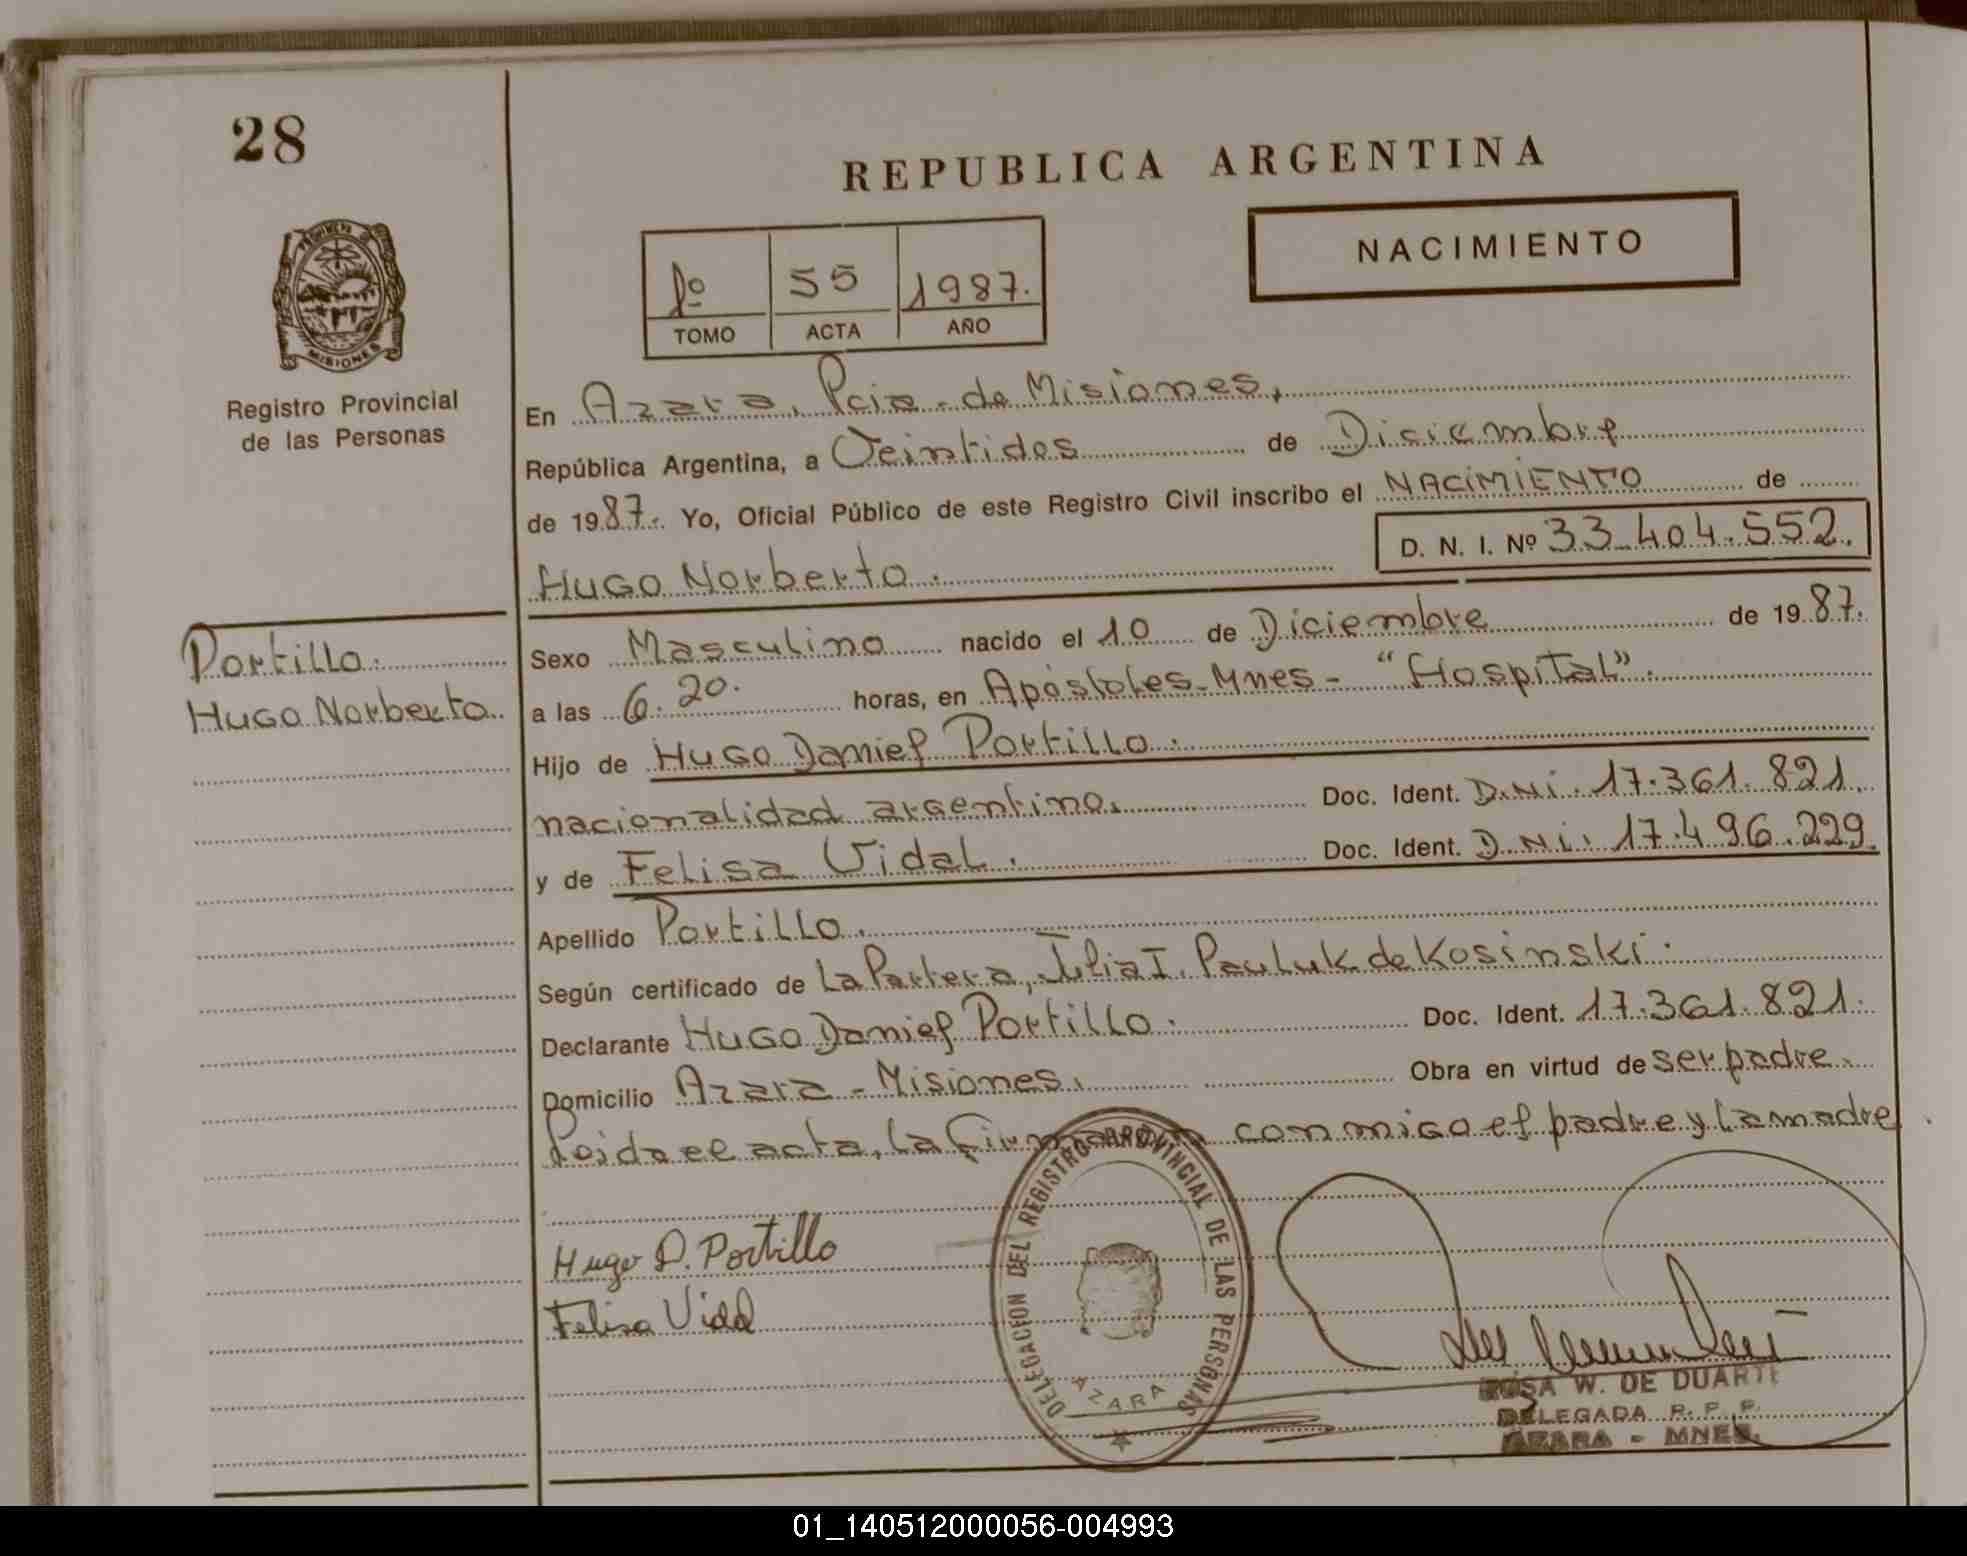 28
REPUBLICA ARGENTINA
NACIMIENTO
1º 55 1987.
TOMO ACTA AÑO
PROVINCIA DE
MISIONES
Registro Provincial
de las Personas
En Azara, Pcia. de Misiones,
República Argentina, a Veintidos de Diciembre
de 1987. Yo, Oficial Público de este Registro Civil inscribo el NACIMIENTO de
D. N. I. Nº 33.404.552.
HUGO Norberto.
Portillo.
Hugo Norberto.
Sexo Masculino nacido el 10 de Diciembre de 1987.
a las 6.20. horas, en Apóstoles-Mnes- "Hospital".
Hijo de Hugo Daniel Portillo.
nacionalidad argentino. Doc. Ident. D.Ni. 17.361.821.
y de Felisa Vidal. Doc. Ident. D.Ni. 17.496.229.
Apellido Portillo.
Según certificado de La Partera, Julia I. Pauluk de Kosinski.
Declarante Hugo Daniel Portillo. Doc. Ident. 17.361.821.
Domicilio Azara - Misiones. Obra en virtud de ser padre.
Leida el acta, la firman conmigo el padre y la madre
Hugo D. Portillo
Felisa Vidal
DELEGACION DEL REGISTRO PROVINCIAL DE LAS PERSONAS
AZARA
ROSA W. DE DUARTE
DELEGADA R. P. P.
AZARA - MNES.
01_140512000056-004993